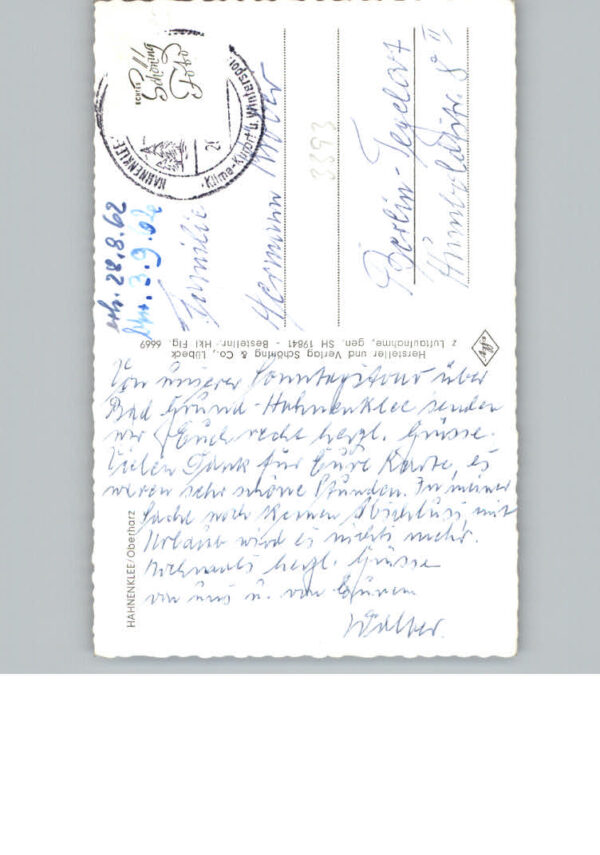 Von unserer Sonntagstour über
Bad Grund-Hahnenklee senden
wir Euch recht herzl. Grüsse.
Vielen Dank für Eure Karte, es
waren sehr schöne Stunden. In meiner
Sache noch keinen Abschluss mit
Urlaub wird es nichts mehr.
Nochmals herzl. Grüsse
von uns u. von Eurem
Walter.
HAHNENKLEE/Oberharz
Hersteller und Verlag Schöning & Co., Lübeck
z Luftaufnahme, gen. SH 19841 - Bestellnr.: Hkl Flg. 6669
erh. 28.8.62
3.9.62
Familie
Hermann
3393
Berlin-Tegelort
Humboldtstr. 8 II
HAHNENKLEE
Klima-Kurort u. Wintersport
ECHTE
Schöning
Foto